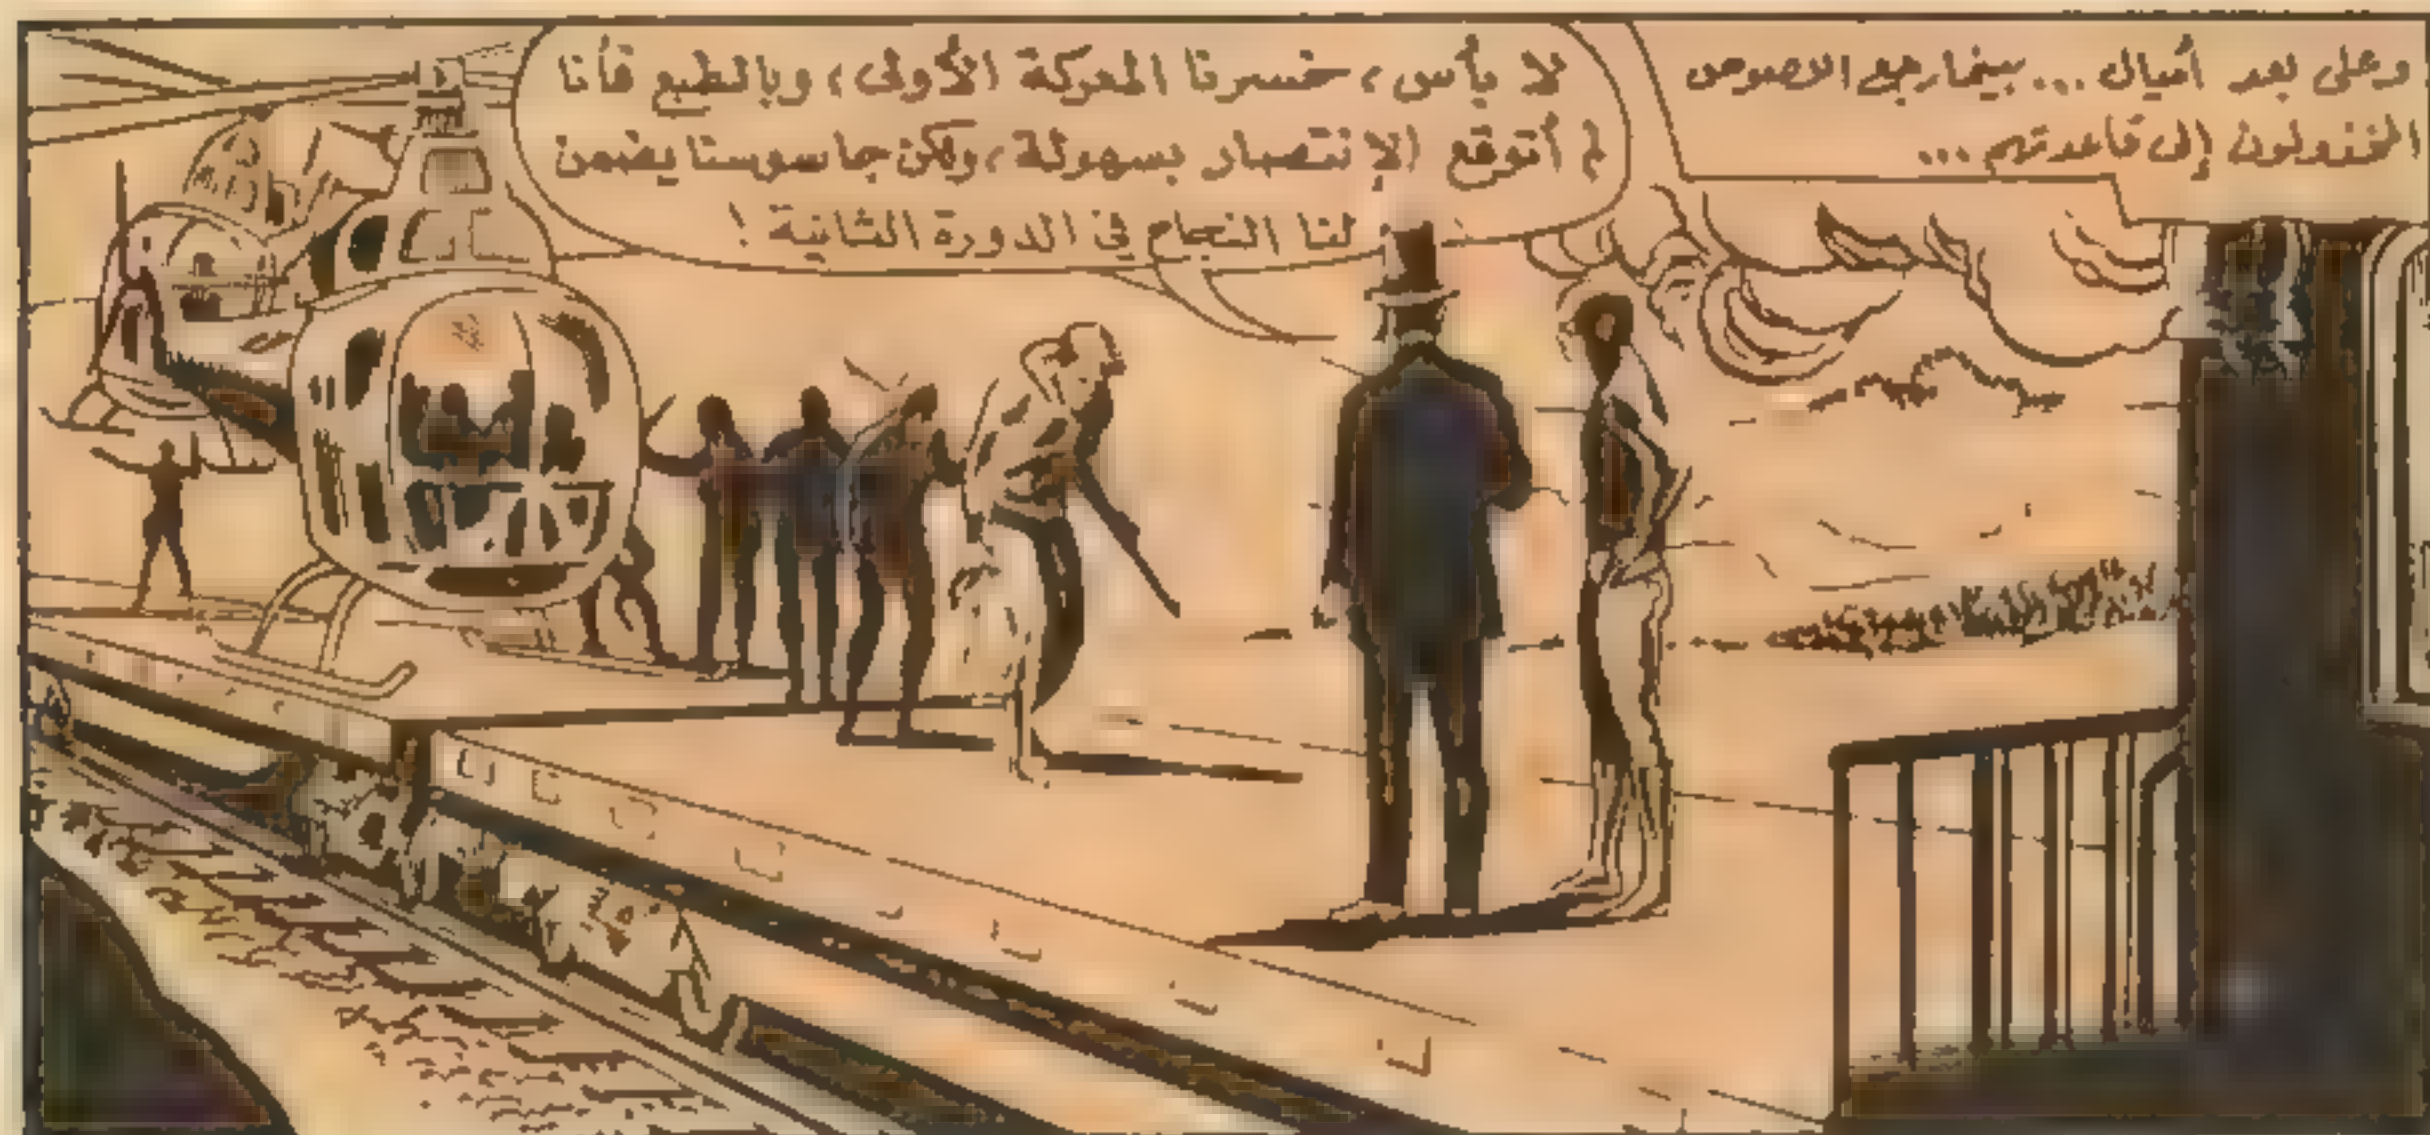 وعلى بعد أميال ... بينما رجع اللصوص
المخذولون إلى قاعدتهم ...
لا بأس، خسرنا المعركة الأولى، وبالطبع فأنا
لم أتوقع الإنتصار بسهولة، ولكن جاسوستنا يضمن
لنا النجاح في الدورة الثانية !